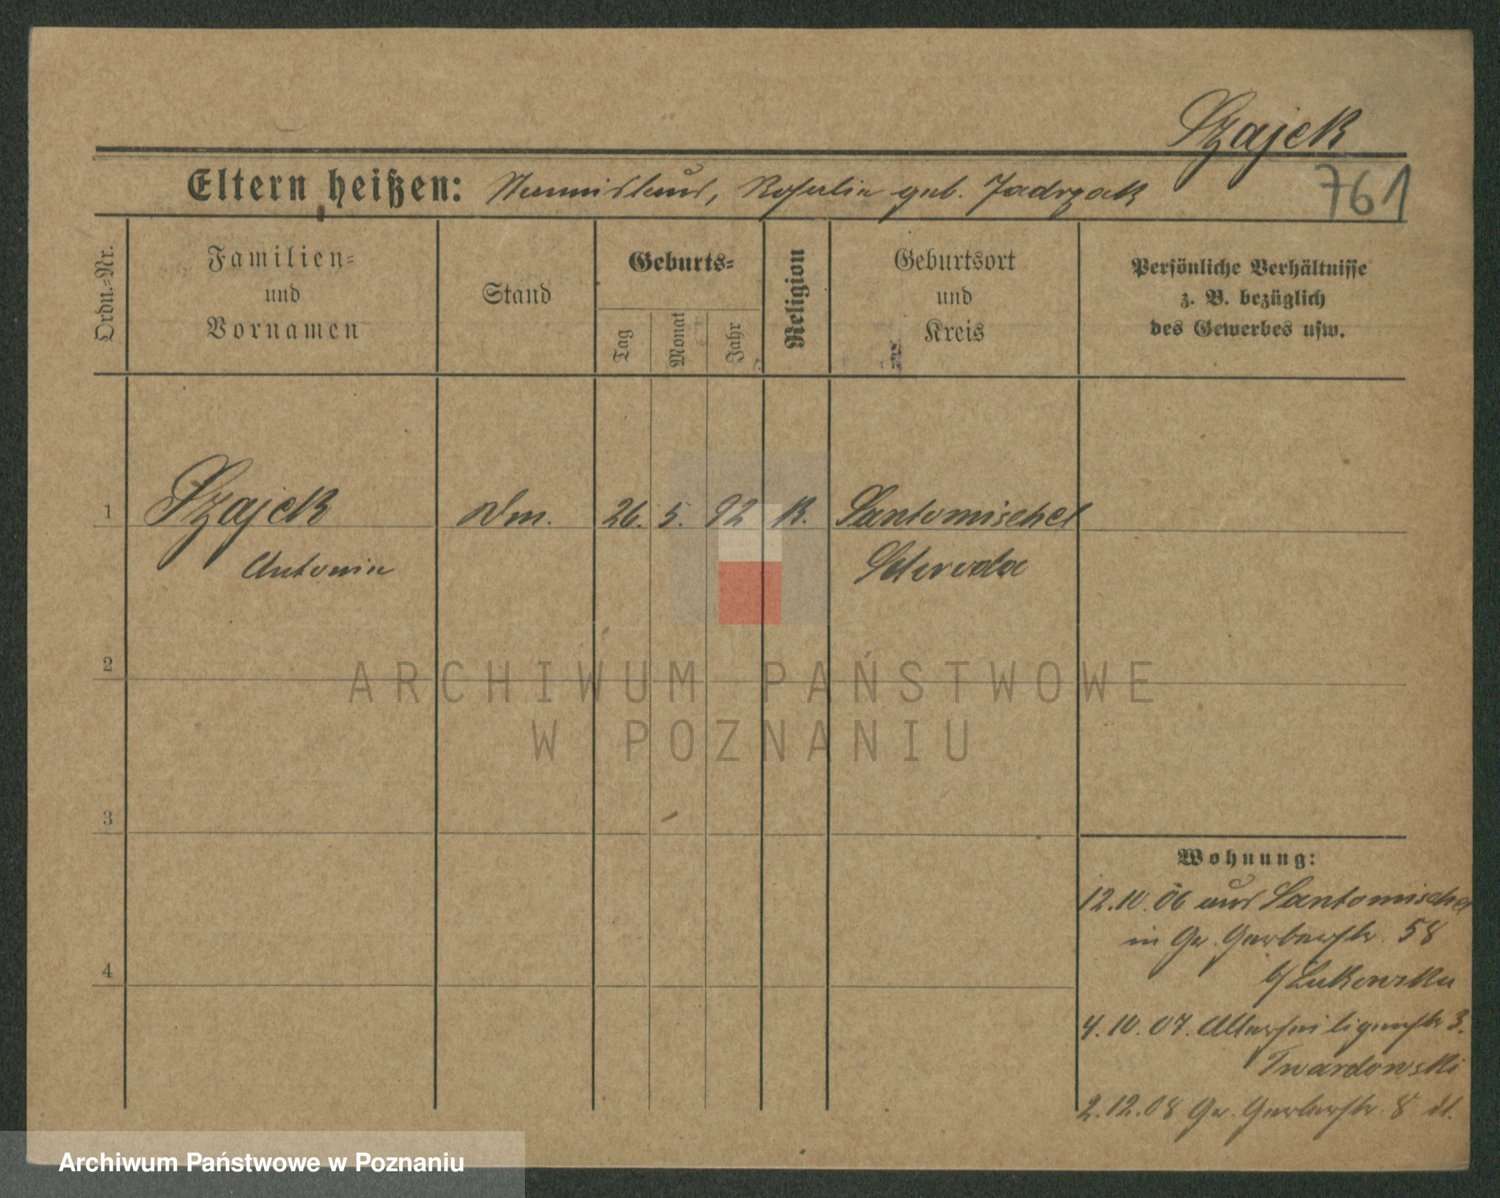 Szajek
Eltern heißen: Stanislaus, Rosalie geb. Jadrzak
761
Ordn.=Nr.
Familien=
und
Vornamen
Stand
Geburts=
Tag
Monat
Jahr
Religion
Geburtsort
und
Kreis
Persönliche Verhältnisse
z. B. bezüglich
des Gewerbes usw.
1 Szajek 26. 5. 92 K. Santomischel
Antonie Schroda
2
ARCHIWUM PAŃSTWOWE
W POZNANIU
3
Wohnung:
12.10.06 aus Santomischel
in Gr. Gerberstr. 58
4
b/Lukowska
4.10.07. Allerheiligenstr 3.
Twardowski
2.12.08 Gr. Gerberstr. 8
Archiwum Państwowe w Poznaniu